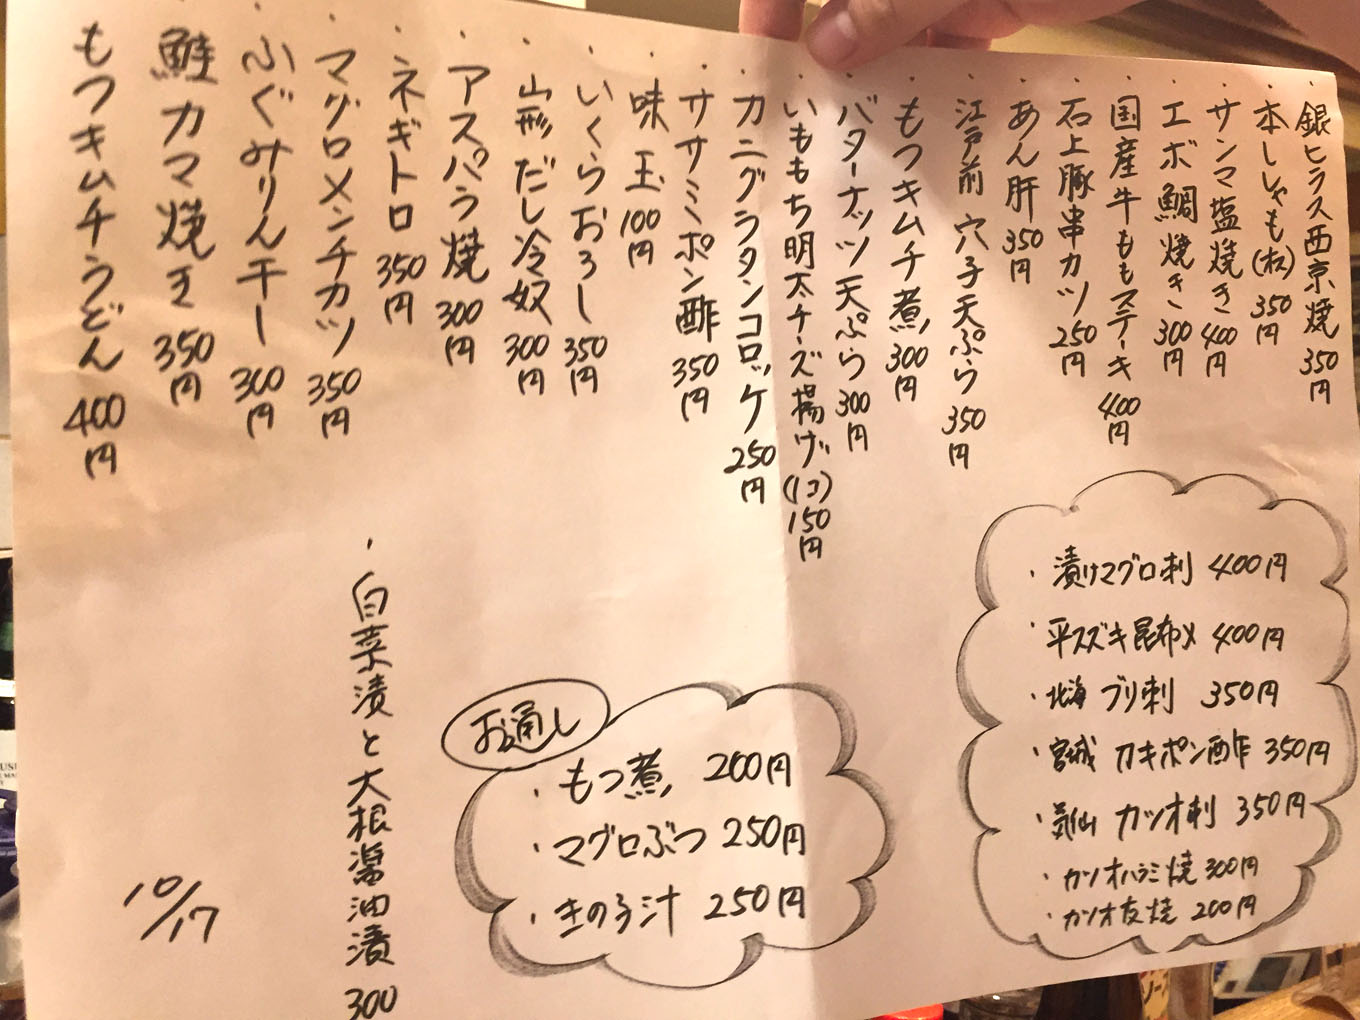 ・銀ヒラス西京焼 350円
・本ししゃも(オス) 350円
・サンマ塩焼き 400円
・エボ鯛焼き 300円
・国産牛ももステーキ 400円
・石上豚串カツ 250円
・あん肝 350円
・江戸前 穴子天ぷら 350円
・もつキムチ煮 300円
・バターナッツ天ぷら 300円
・いももち明太チーズ揚げ(1コ) 150円
・カニグラタンコロッケ 250円
・ササミポン酢 350円
・味玉 100円
・いくらおろし 350円
・山形だし冷奴 300円
・アスパラ焼 300円
・ネギトロ 350円
・マグロメンチカツ 350円
・ふぐみりん干し 300円
・鮭カマ焼き 350円
・もつキムチうどん 400円
・漬けマグロ刺 400円
・平スズキ昆布〆 400円
・北海 ブリ刺 350円
・宮城 カキポン酢 350円
・気仙 カツオ刺 350円
・カツオハラミ焼 300円
・カツオ友焼 200円
お通し
・もつ煮 200円
・マグロぶつ 250円
・きの子汁 250円
・白菜漬と大根醤油漬 300
10/17